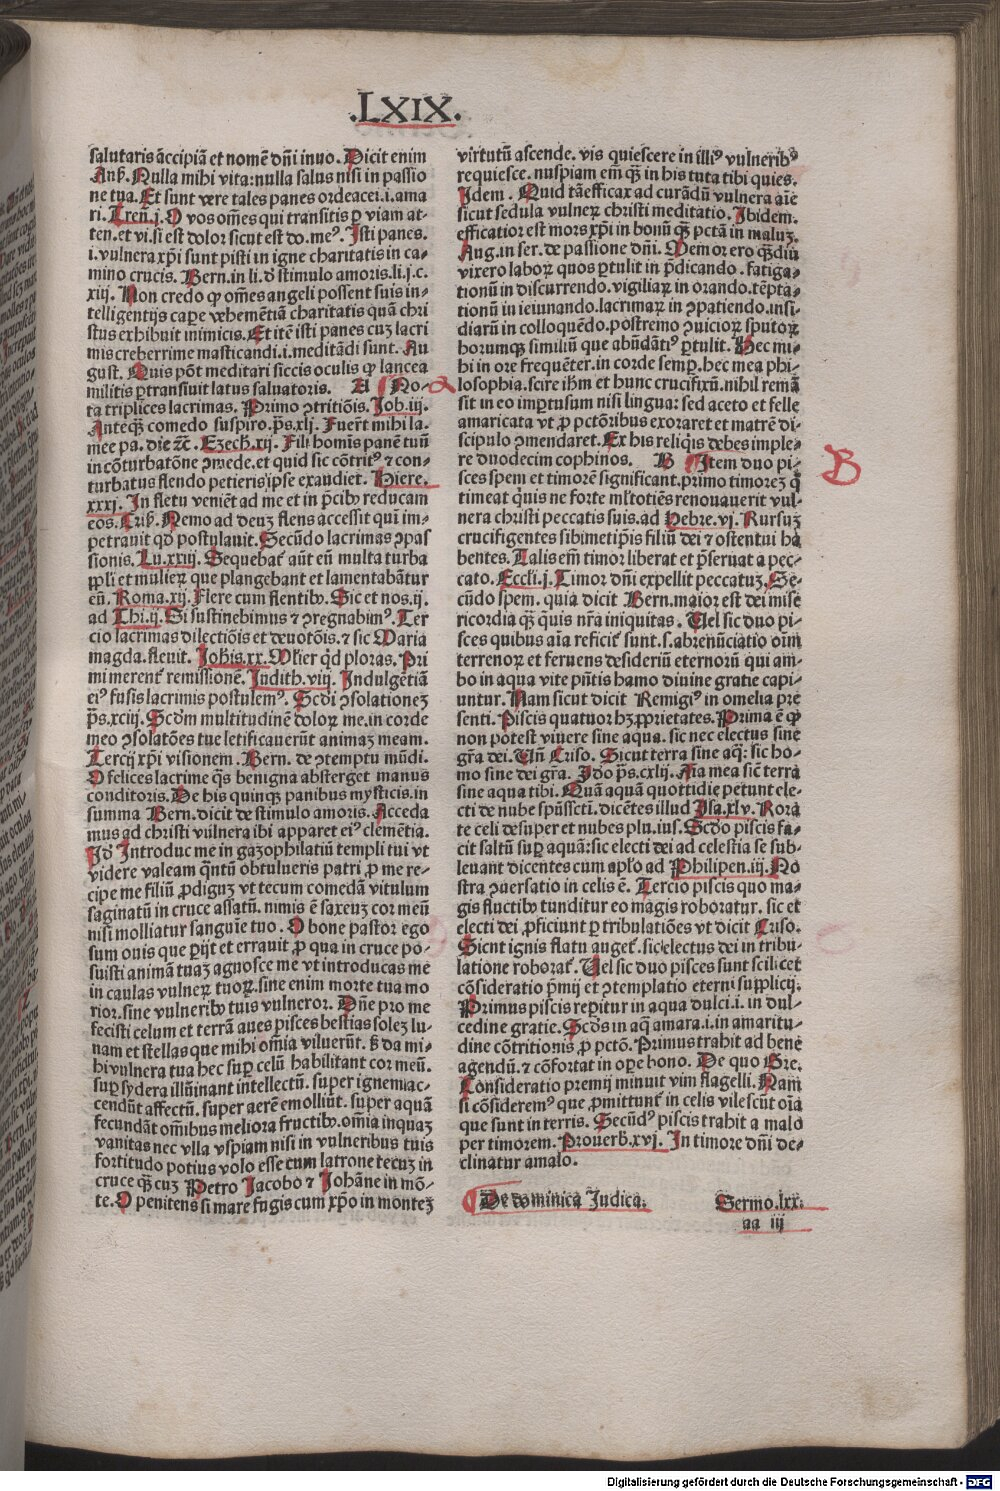 .LXIX.
salutaris accipiā et nomē dn̄i inuo. Dicit enim
Anß. Nulla mihi vita: nulla salus nisi in passio
ne tua. Et sunt vere tales panes ordeacei .i. ama
ri. Tren̄. j. O vos om̄es qui transitis ꝑ viam at-
ten. et vi. si est dolor sicut est do. meꝰ. Isti panes.
i. vulnera xp̄i sunt pisti in igne charitatis in ca-
mino crucis. Bern. in li. d̓ stimulo amoris. li. j. c.
xiij. Non credo ꝙ om̄es angeli possent suis in-
telligentijs cape vehemētiā charitatis quā chri
stus exhibuit inimicis. Et itē isti panes cuꝫ lacri
mis creberrime masticandi .i. meditādi sunt. Au
gust. Quis pōt meditari siccis oculis ꝙ lancea
militis ꝑtransiuit latus saluatoris. A No-
ta triplices lacrimas. Primo ꝯtritiōis. Job. iij.
Anteqꝫ comedo suspiro. p̄s. xlj. Fuer̄t mihi la.
mee pa. die ⁊c̄. Ezech. xij. Fili homīs panē tuū
in cōturbatōne ꝯmede. et quid sic cōtritꝰ ⁊ con-
turbatus flendo petieris ipse exaudiet. Hiere.
xxxj. In fletu veniēt ad me et in p̄cibꝰ reducam
eos. Criß. Nemo ad deuꝫ flens accessit qui im-
petrauit qd̓ postulauit. Secūdo lacrimas ꝯpas
sionis. Lu. xxiij. Sequebat̄ aūt eū multa turba
ppli et mulieꝝ que plangebant et lamentabātur
eū. Roma. xij. Flere cum flentibꝰ. Sic et nos .ij.
ad Thi. ij. Si sustinebimus ⁊ ꝯregnabimꝰ. Ter
cio lacrimas dilectiōis et deuotōis. ⁊ sic Maria
magda. fleuit. Joh̄is. xx. Mlier qd̓ ploras. Pri
mi merent̄ remissionē. Judith. viij. Indulgētiā
eiꝰ fusis lacrimis postulemꝰ. Scd̓i ꝯsolationeꝫ
p̄s. xciij. Scd̓m multitudinē doloꝝ me. in corde
meo ꝯsolatōes tue letificauerūt animaꝫ meam.
Tercij xp̄i visionem. Bern. de ꝯtemptu mūdi.
O felices lacrime q̄s benigna absterget manus
conditoris. De his quinqꝫ panibus mysticis. in
summa Bern. dicit de stimulo amoris. Acceda
mus ad christi vulnera ibi apparet eiꝰ clemētia.
Jd̓ Introduc me in gazophilatiū templi tui vt
videre valeam q̄ntū obtulueris patri ꝓ me re-
cipe me filiū ꝓdiguꝫ vt tecum comedā vitulum
saginatū in cruce assatū. nimis ē saxeuꝫ cor meū
nisi molliatur sanguīe tuo. O bone pastor ego
sum ouis que ꝑijt et errauit ꝓ qua in cruce po-
suisti animā tuaꝫ agnosce me vt introducas me
in caulas vulneꝝ tuoꝝ. sine enim morte tua mo
rior. sine vulneribꝰ tuis vulneror. Dn̄e pro me
fecisti celum et terrā aues pisces bestias soleꝫ lu-
nam et stellas que mihi om̄ia viluerūt. ß da mi-
hi vulnera tua hec suꝑ celū habilitant cor meū.
suꝑ sydera illūinant intellectū. super ignem ac-
cendūt affectū. super aerē emolliūt. super aquā
fecundāt om̄ibus meliora fructibꝰ. om̄ia inquaꝫ
vanitas nec vlla vspiam nisi in vulneribus tuis
fortitudo potius volo esse cum latrone tecuꝫ in
cruce qꝫ cuꝫ Petro Jacobo ⁊ Johāne in mō-
te. O penitens si mare fugis cum xp̄o in monteꝫ
virtutū ascende. vis quiescere in illiꝰ vulneribꝰ
requiesce. nuspiam em̄ qꝫ in his tuta tibi quies.
Jdem. Quid tā efficax ad curādū vulnera aīe
sicut sedula vulneꝝ christi meditatio. Ibidem.
efficatior est mors xp̄i in bonū qꝫ pctā in maluꝫ.
Aug. in ser. de passione dn̄i. Memor ero qꝫdiu
vixero laboꝝ quos ꝑtulit in p̄dicando. fatiga-
tionū in discurrendo. vigiliaꝝ in orando. tēpta-
tionū in ieiunando. lacrimaꝝ in ꝯpatiendo. insi-
diarū in colloquēdo. postremo ꝯuicioꝝ sputoꝝ
horumqꝫ similiū que abūdātiꝰ ꝑtulit. Hec mi-
hi in ore frequēter. in corde semꝑ. hec mea phi-
losophia. scire ihm̄ et hunc crucifixū. nihil remā
sit in eo imꝑtusum nisi lingua: sed aceto et felle
amaricata vt ꝓ pctōribus exoraret et matrē di-
scipulo ꝯmendaret. Ex his reliqis debes imple-
re duodecim cophinos. B Item duo pi-
sces spem et timorē significant. primo timoreꝫ q̄
timeat quis ne forte ml̓totiēs renouauerit vul-
nera christi peccatis suis. ad Hebre. vj. Rursuꝫ
crucifigentes sibimetip̄is filiū dei ⁊ ostentui ha
bentes. Talis em̄ timor liberat et p̄seruat a pec-
cato. Eccli. j. Timor dn̄i expellit peccatuꝫ. Se-
cūdo spem. quia dicit Bern. maior est dei mise
ricordia qꝫ quis nr̄a iniquitas. Uel sic duo pi-
sces quibus aīa reficit̄ sunt. s. abrenūciatio oīm
terrenoꝝ et feruens desideriū eternorū qui am-
bo in aqua vite pn̄tis hamo diuine gratie capi-
untur. Nam sicut dicit Remigiꝰ in omelia pre
senti. Piscis quatuor hꝫ ꝓprietates. Prima ē ꝙ
non potest viuere sine aqua. sic nec electus sine
gr̄a dei. Un̄ Criso. Sicut terra sine aq̄: sic ho-
mo sine dei gr̄a. Jdo p̄s. cxlij. Aīa mea sic̄ terra
sine aqua tibi. Quā aquā quottidie petunt ele-
cti de nube spūsscti. dicētes illud Jsa. xlv. Rora
te celi desuper et nubes plu. ius. Scd̓o piscis fa-
cit saltū suꝑ aquā: sic electi dei ad celestia se sub-
leuant dicentes cum apl̓o ad Philipen. iij. No
stra ꝯuersatio in celis ē. Tercio piscis quo ma-
gis fluctibꝰ tunditur eo magis roboratur. sic et
electi dei ꝓficiunt ꝑ tribulatiōes vt dicit Criso.
Sicut ignis flatu auget̄. sic electus dei in tribu-
latione roborat̄. Uel sic duo pisces sunt scilicet
cōsideratio p̄mij et ꝯtemplatio eterni supplicij.
Primus piscis reꝑitur in aqua dulci .i. in dul-
cedine gratie. Scd̓s in aq̄ amara .i. in amaritu-
dine cōtritionis ꝓ pctō. Primus trahit ad bene
agendū. ⁊ cōfortat in oꝑe bono. De quo Gre.
Consideratio premij minuit vim flagelli. Nam
si cōsideremꝰ que ꝓmittunt̄ in celis vilescūt oīa
que sunt in terris. Secūdꝰ piscis trahit a malo
per timorem. Prouerb. xvj. In timore dn̄i de-
clinatur a malo.
B
De dominica Judica. Sermo. lxx.
aa iij
Digitalisierung gefördert durch die Deutsche Forschungsgemeinschaft - DFG